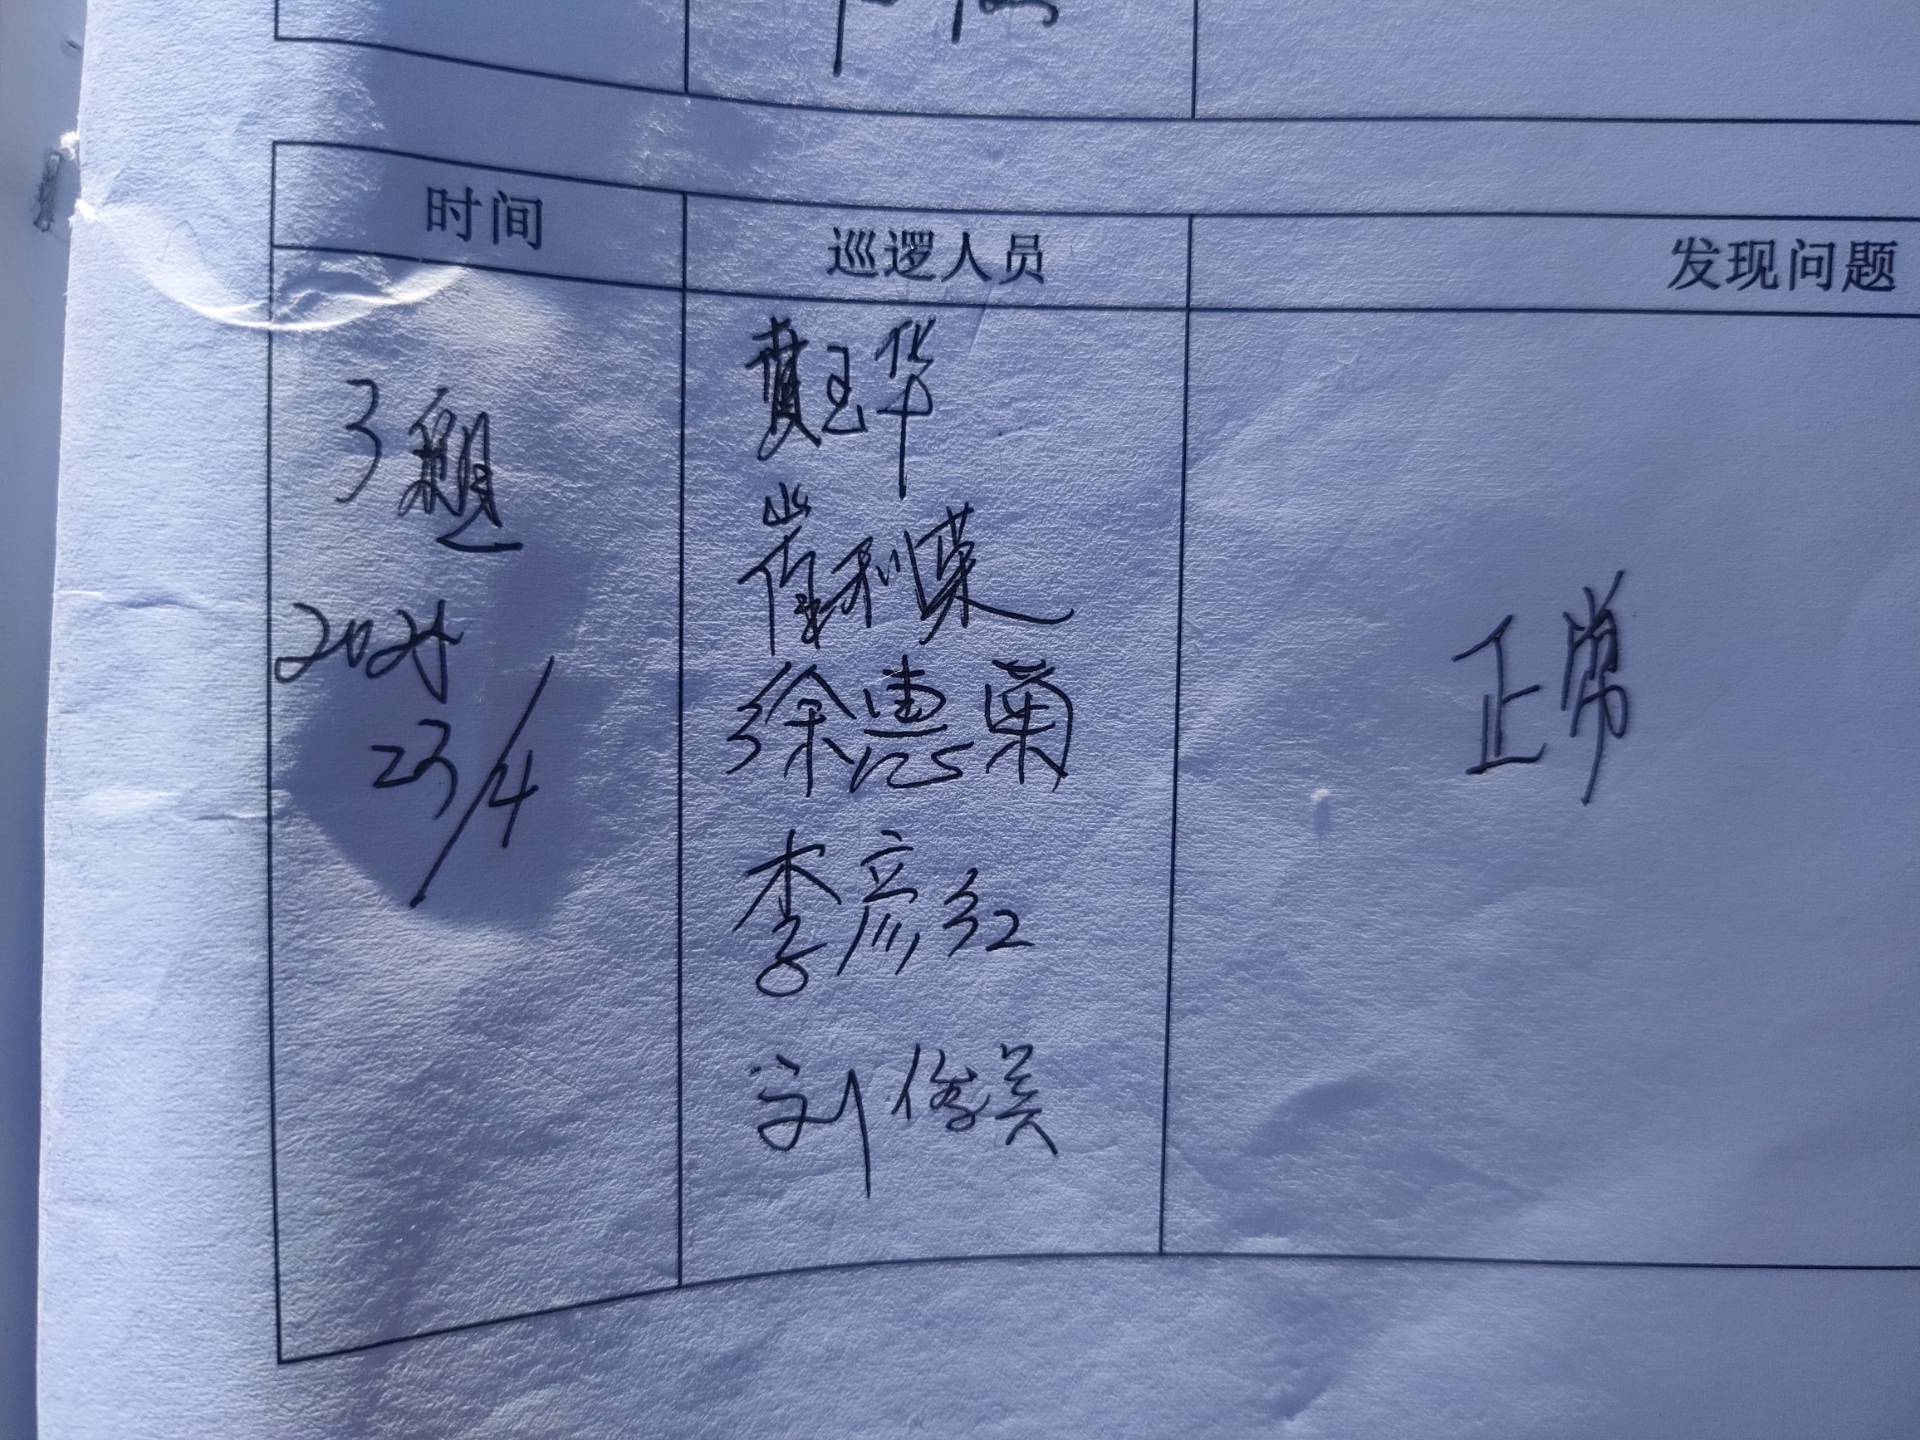 时间 巡逻人员 发现问题
黄玉华
崔利荣
徐惠菊
李彦红
刘俊美
3题
2025
23/4
正常